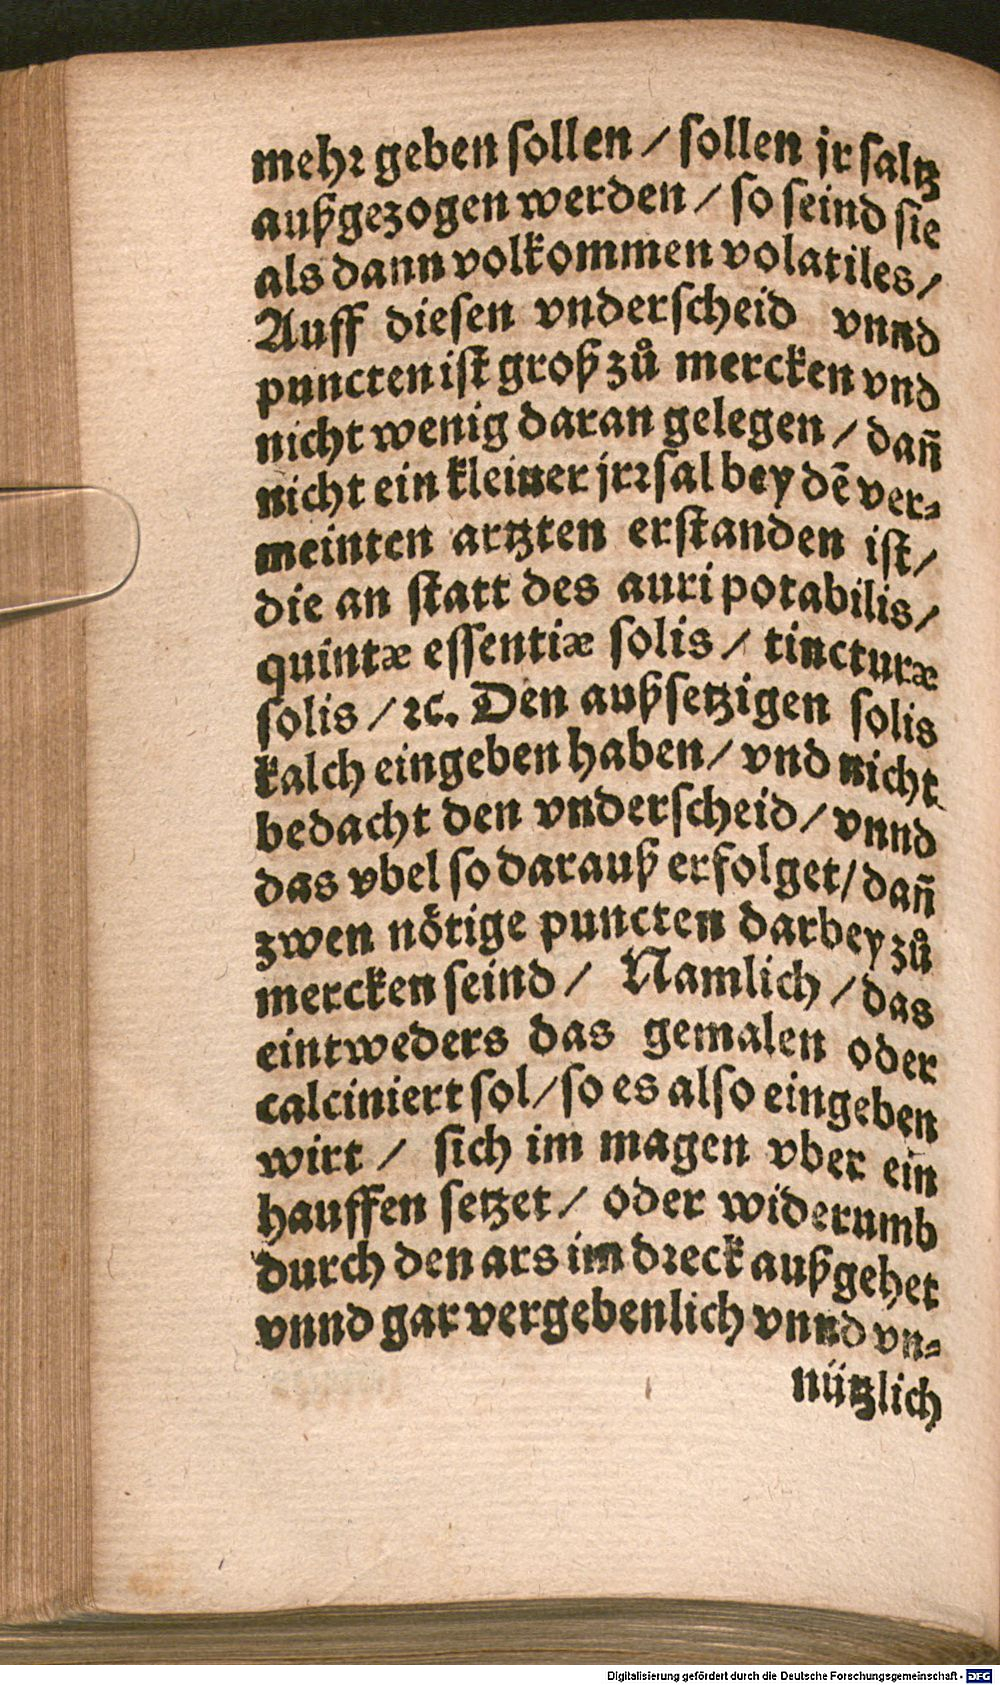 mehr geben sollen / sollen jr saltz
außgezogen werden / so seind sie
als dann volkommen volatiles /
Auff diesen vnderscheid vnnd
puncten ist groß zů mercken vnd
nicht wenig daran gelegen / dañ
nicht ein kleiner jrrsal bey dẽ ver⸗
meinten artzten erstanden ist /
die an statt des auri potabilis /
quintæ essentiæ solis / tincturæ
solis / ꝛc. Den außsetzigen solis
kalch eingeben haben / vnd nicht
bedacht den vnderscheid / vnnd
das vbel so darauß erfolget / dañ
zwen nötige puncten darbey zů
mercken seind / Namlich / das
eintweders das gemalen oder
calciniert sol / so es also eingeben
wirt / sich im magen vber ein
hauffen setzet / oder widerumb
durch den ars im dreck außgehet
vnnd gar vergebenlich vnnd vn⸗
nützlich
Digitalisierung gefördert durch die Deutsche Forschungsgemeinschaft - DFG